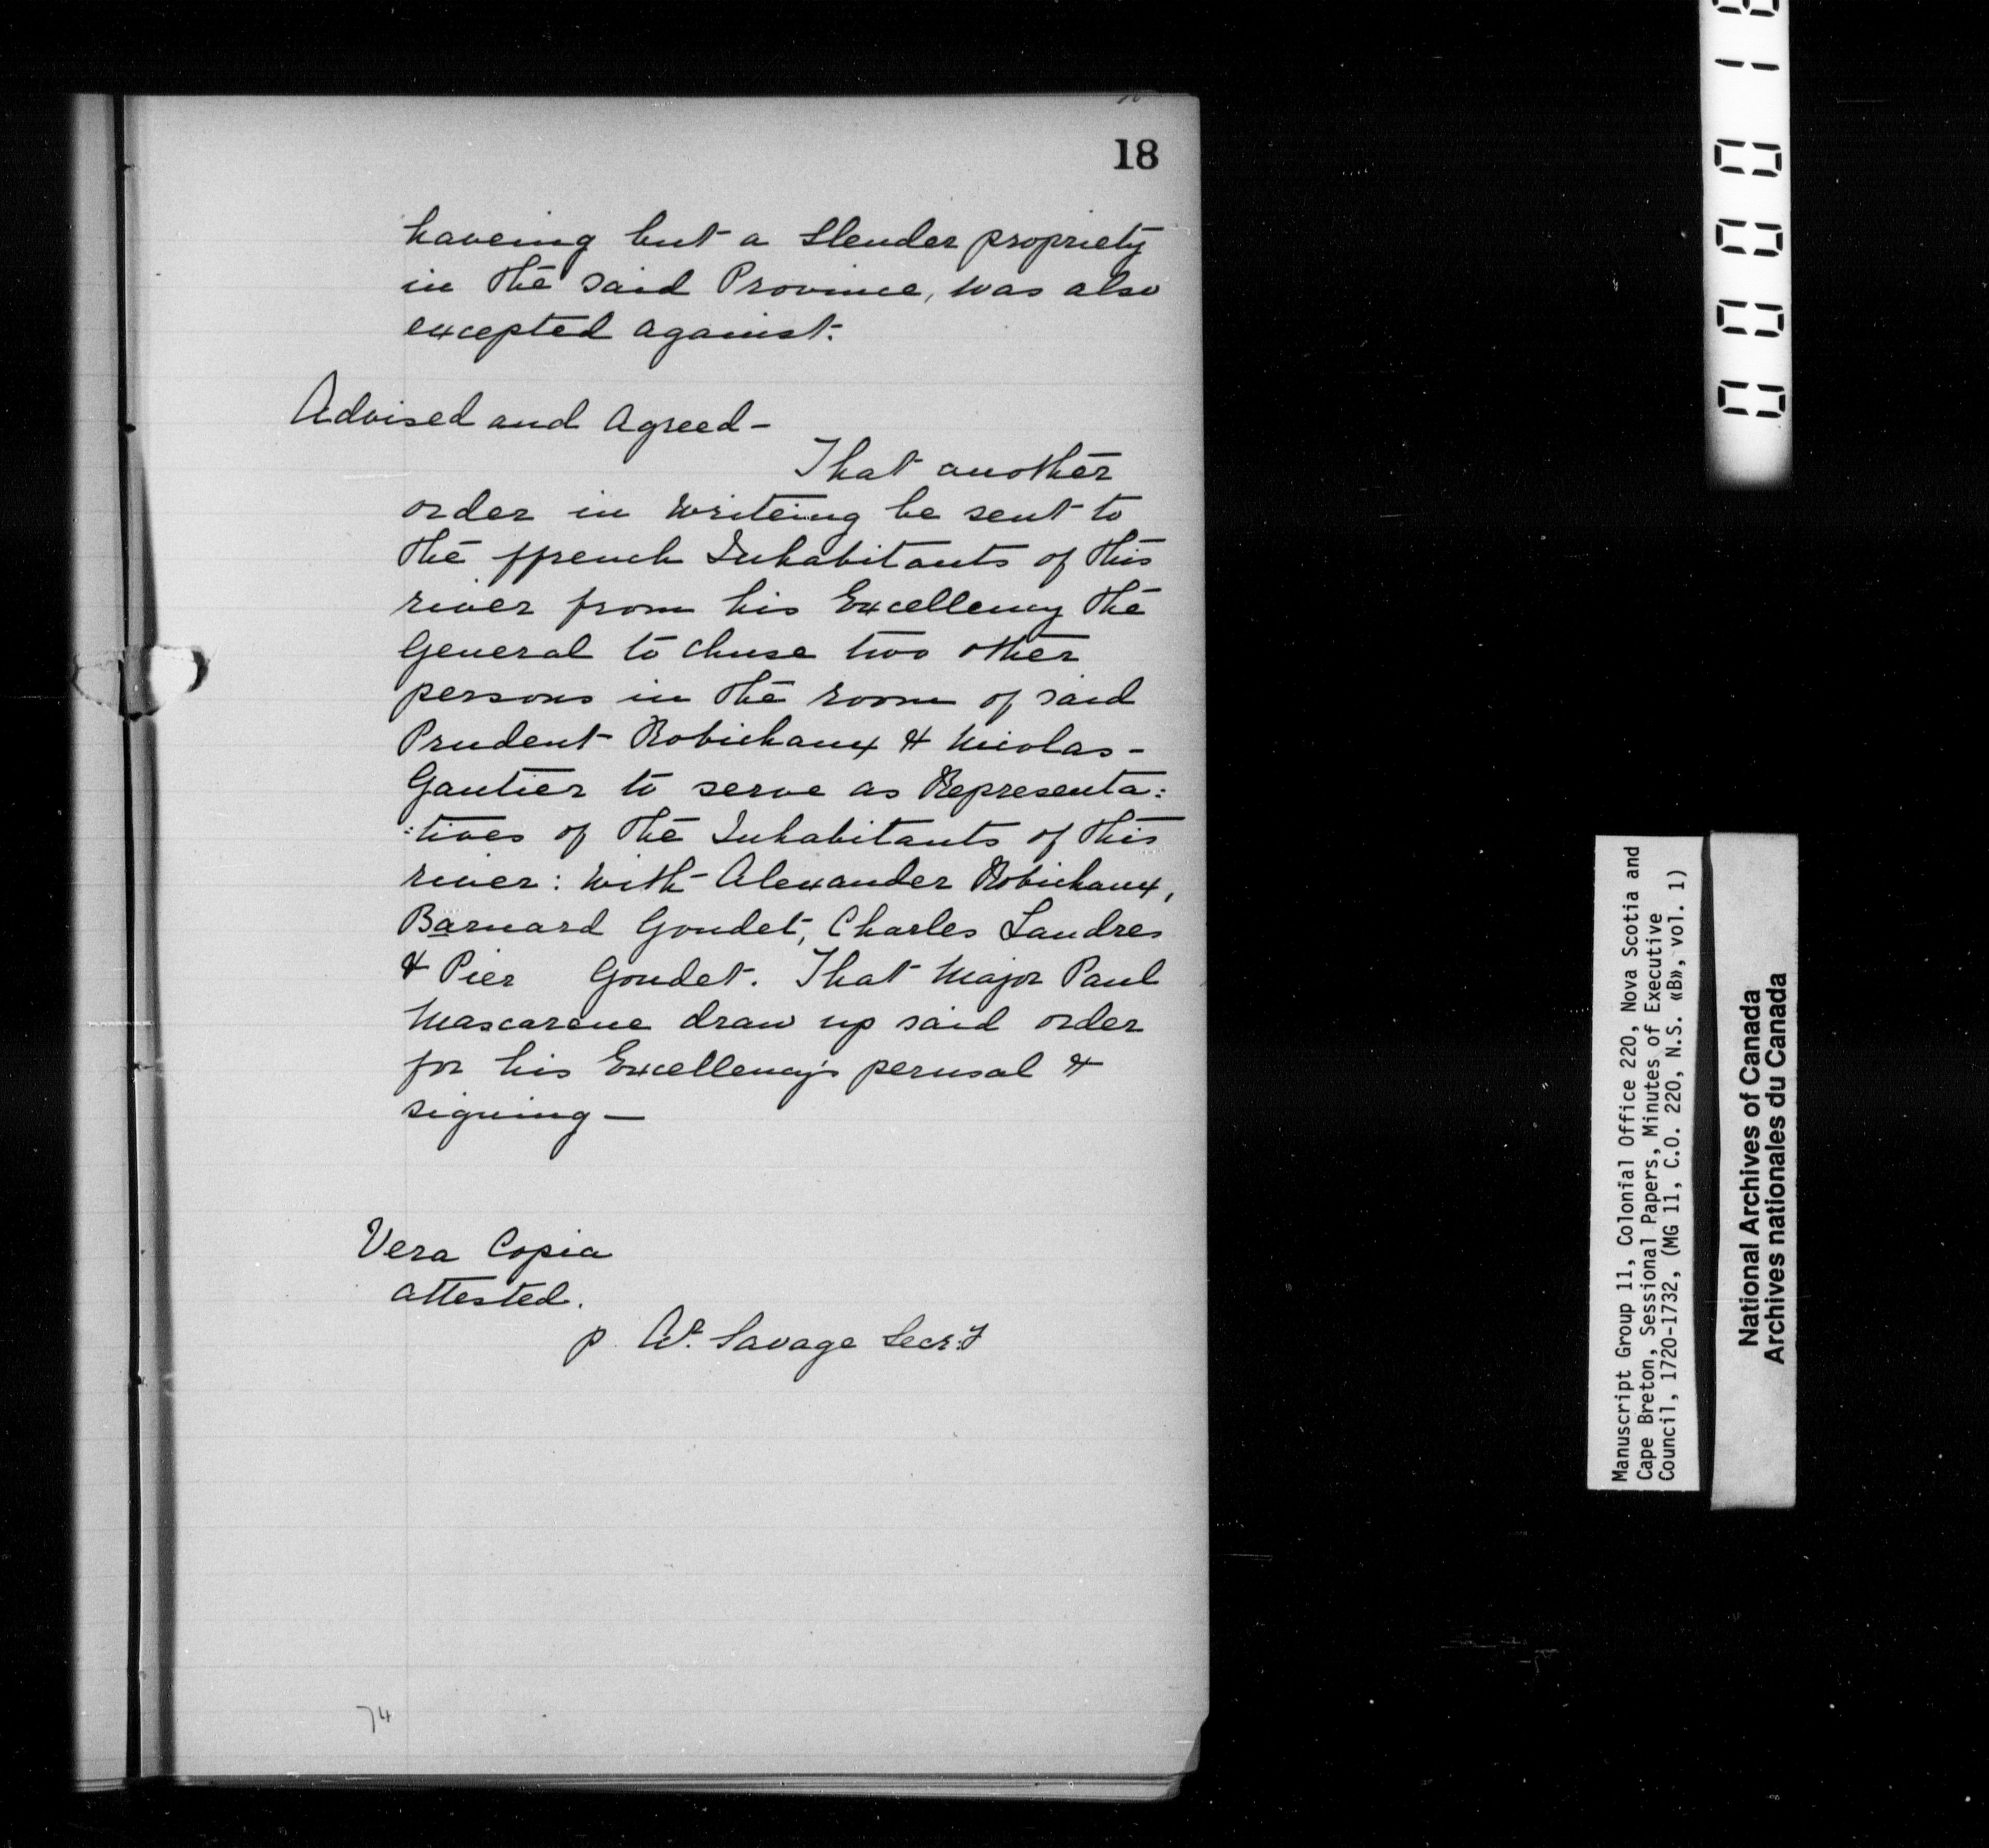 18
haveing but a Slender propriety
in the said Province, was also
excepted against.
Advised and Agreed -
That another
order in Writeing be sent to
the ffrench Inhabitants of this
river from his Excellency the
General to chuse two other
persons in the room of said
Prudent Robichaux & Nicolas -
Gautier to serve as Representa:
:tives of the Inhabitants of this
river: With Alexander Robichaux,
Barnard Goudet, Charles Landres
& Pier Goudet. That Major Paul
Mascarene draw up said order
for his Excellency's perusal &
signing —
Vera Copia
attested.
p Ar. Savage Secr:y
74
Manuscript Group 11, Colonial Office 220, Nova Scotia and
Cape Breton, Sessional Papers, Minutes of Executive
Council, 1720-1732, (MG 11, C.O. 220, N.S. «B», vol. 1)
National Archives of Canada
Archives nationales du Canada